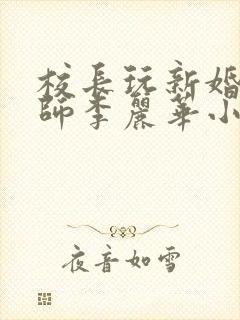 校長玩新婚
師李麗華小
夜音如雪